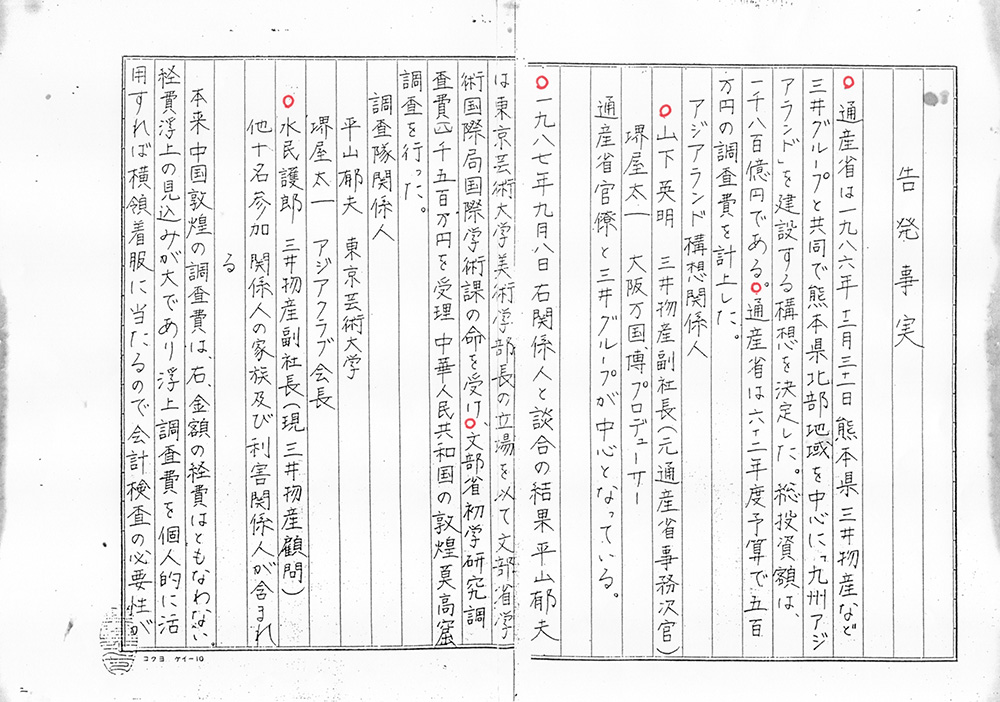 告発事実
○通産省は一九八六年十二月三十一日 熊本県 三井物産など
三井グループと共同で熊本県北部地域を中心に「九州アジ
アランド」を建設する構想を決定した。総投資額は、
一千八百億円である。○通産省は六十二年度予算で五百
万円の調査費を計上した。
アジアランド構想関係人
○山下英明 三井物産副社長(元通産省事務次官)
堺屋太一 大阪万国博プロデューサー
通産省官僚と三井グループが中心となっている。
○一九八七年九月八日右関係人と談合の結果平山郁夫
は東京芸術大学美術学部長の立場を以て文部省学
術国際局国際学術課の命を受け、○文部省初学研究調
査費四千五百万円を受理 中華人民共和国の敦煌莫高窟
調査を行った。
調査隊関係人
平山郁夫 東京芸術大学
堺屋太一 アジアクラブ会長
○水民護郎 三井物産副社長(現 三井物産顧問)
他十名参加 関係人の家族及び利害関係人が含まれ
る
本来中国敦煌の調査費は、右、金額の経費はともなわない
経費浮上の見込みが大であり浮上調査費を個人的に活
用すれば横領着服に当たるので会計検査の必要性が
コクヨ ケイー10